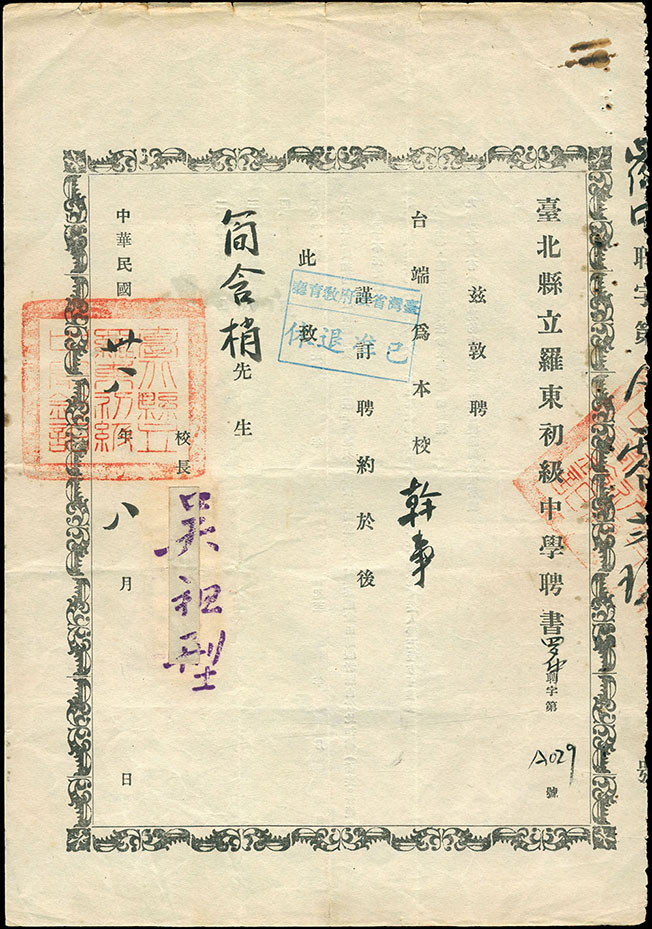 臺北縣立羅東初級中學聘書 羅中聘字第A029號
茲敦聘
台端為本校幹事
謹訂聘約於後
此致
简含梢先生
校長吳祖型
中華民國卅八年八月 日
臺灣省政府教育廳
已參退保
臺北縣立羅東初級中學
聘字第
號